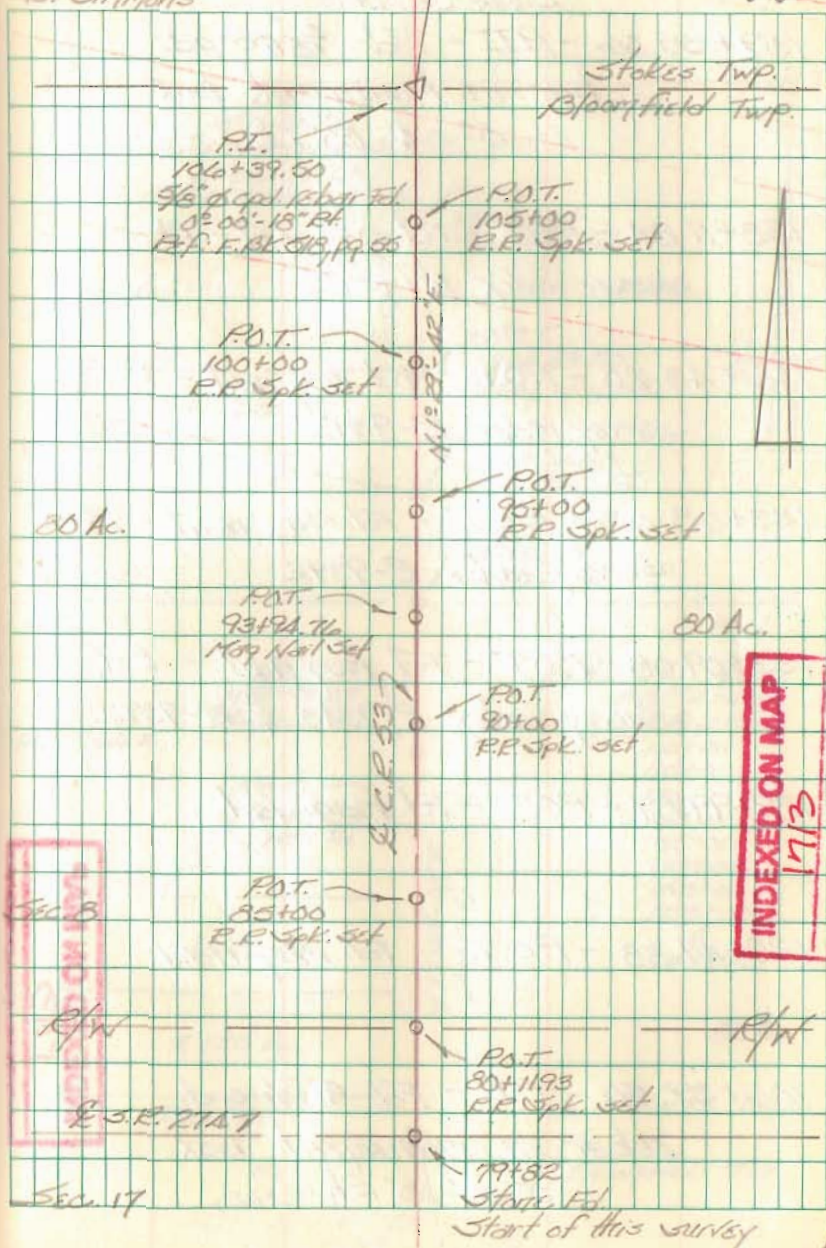 Stokes Twp.
Bloomfield Twp.
P.I.
106+39.50
5/8" ø cpd. rebar Fd.
0°-00'-18" Rt.
Ref. F.BK. 518, pg. 56
P.O.T.
105+00
R.R. Spk. set
N.1°-29'-42"E.
P.O.T.
100+00
R.R. Spk. set
P.O.T.
95+00
R.R. Spk. set
80 Ac.
P.O.T.
93+94.76
Mag Nail Set
80 Ac.
P.O.T.
90+00
R.R. Spk. set
℄ C.R. 537
INDEXED ON MAP
1713
P.O.T.
85+00
R.R. Spk. set
Sec. 8
R/W
R/W
P.O.T.
80+11.93
R.R. Spk. set
℄ S.R. 274
79+82
Stone, Fd.
Start of this survey
Sec. 17